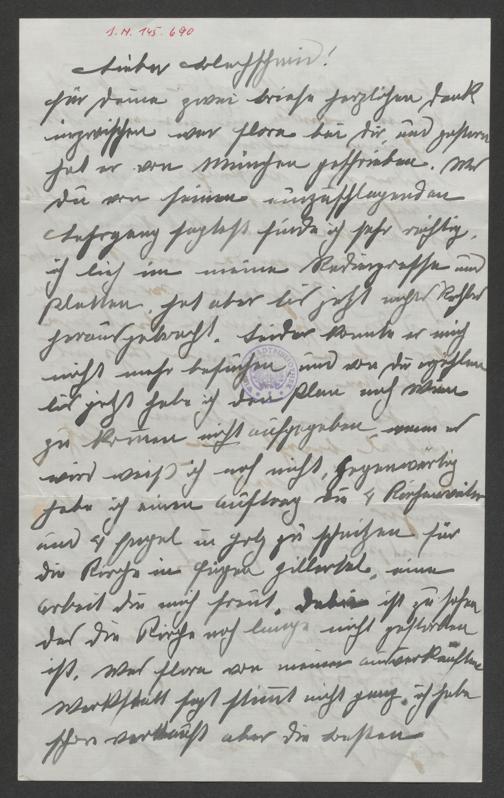 I.N. 145.690
Lieber Blechschmid!
Für Deine zwei Briefe herzlichen Dank
inzwischen war Flora bei Dir und gestern
hat er von München geschrieben. Was
Du von seinem einzuschlagenden
Lehrgang sagtest finde ich sehr richtig,
ich lieh im meine Radierpresse und
Platten, hat aber bis jetzt nichts Rechtes
herausgebracht. Leider konnte er mich
nicht mehr besuchen und von Dir erzählen
bis jetzt habe ich den Plan nach Wien
zu kommen nicht aufgegeben wann es
wird weiß ich noch nicht. Gegenwärtig
habe ich einen Auftrag die 4 Kirchenväter
und 4 Engel in Holz zu schnitzen für
die Kirche in Fügen Zillertal, eine
Arbeit die mich freut. Dabei ist zu sehen
das die Kirche noch lange nicht gestorben
ist. Was Flora von meiner ausverkauften
Werkstatt sagt stimmt nicht ganz, ich habe
schon verkauft aber die besten